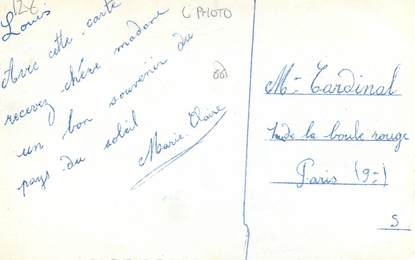 12€
C PHOTO
Louis
Avec cette carte
recevez chère madame
un bon souvenir du
pays du soleil
Marie Claire
Mme Cardinal
de la boule rouge
Paris (9e)
S